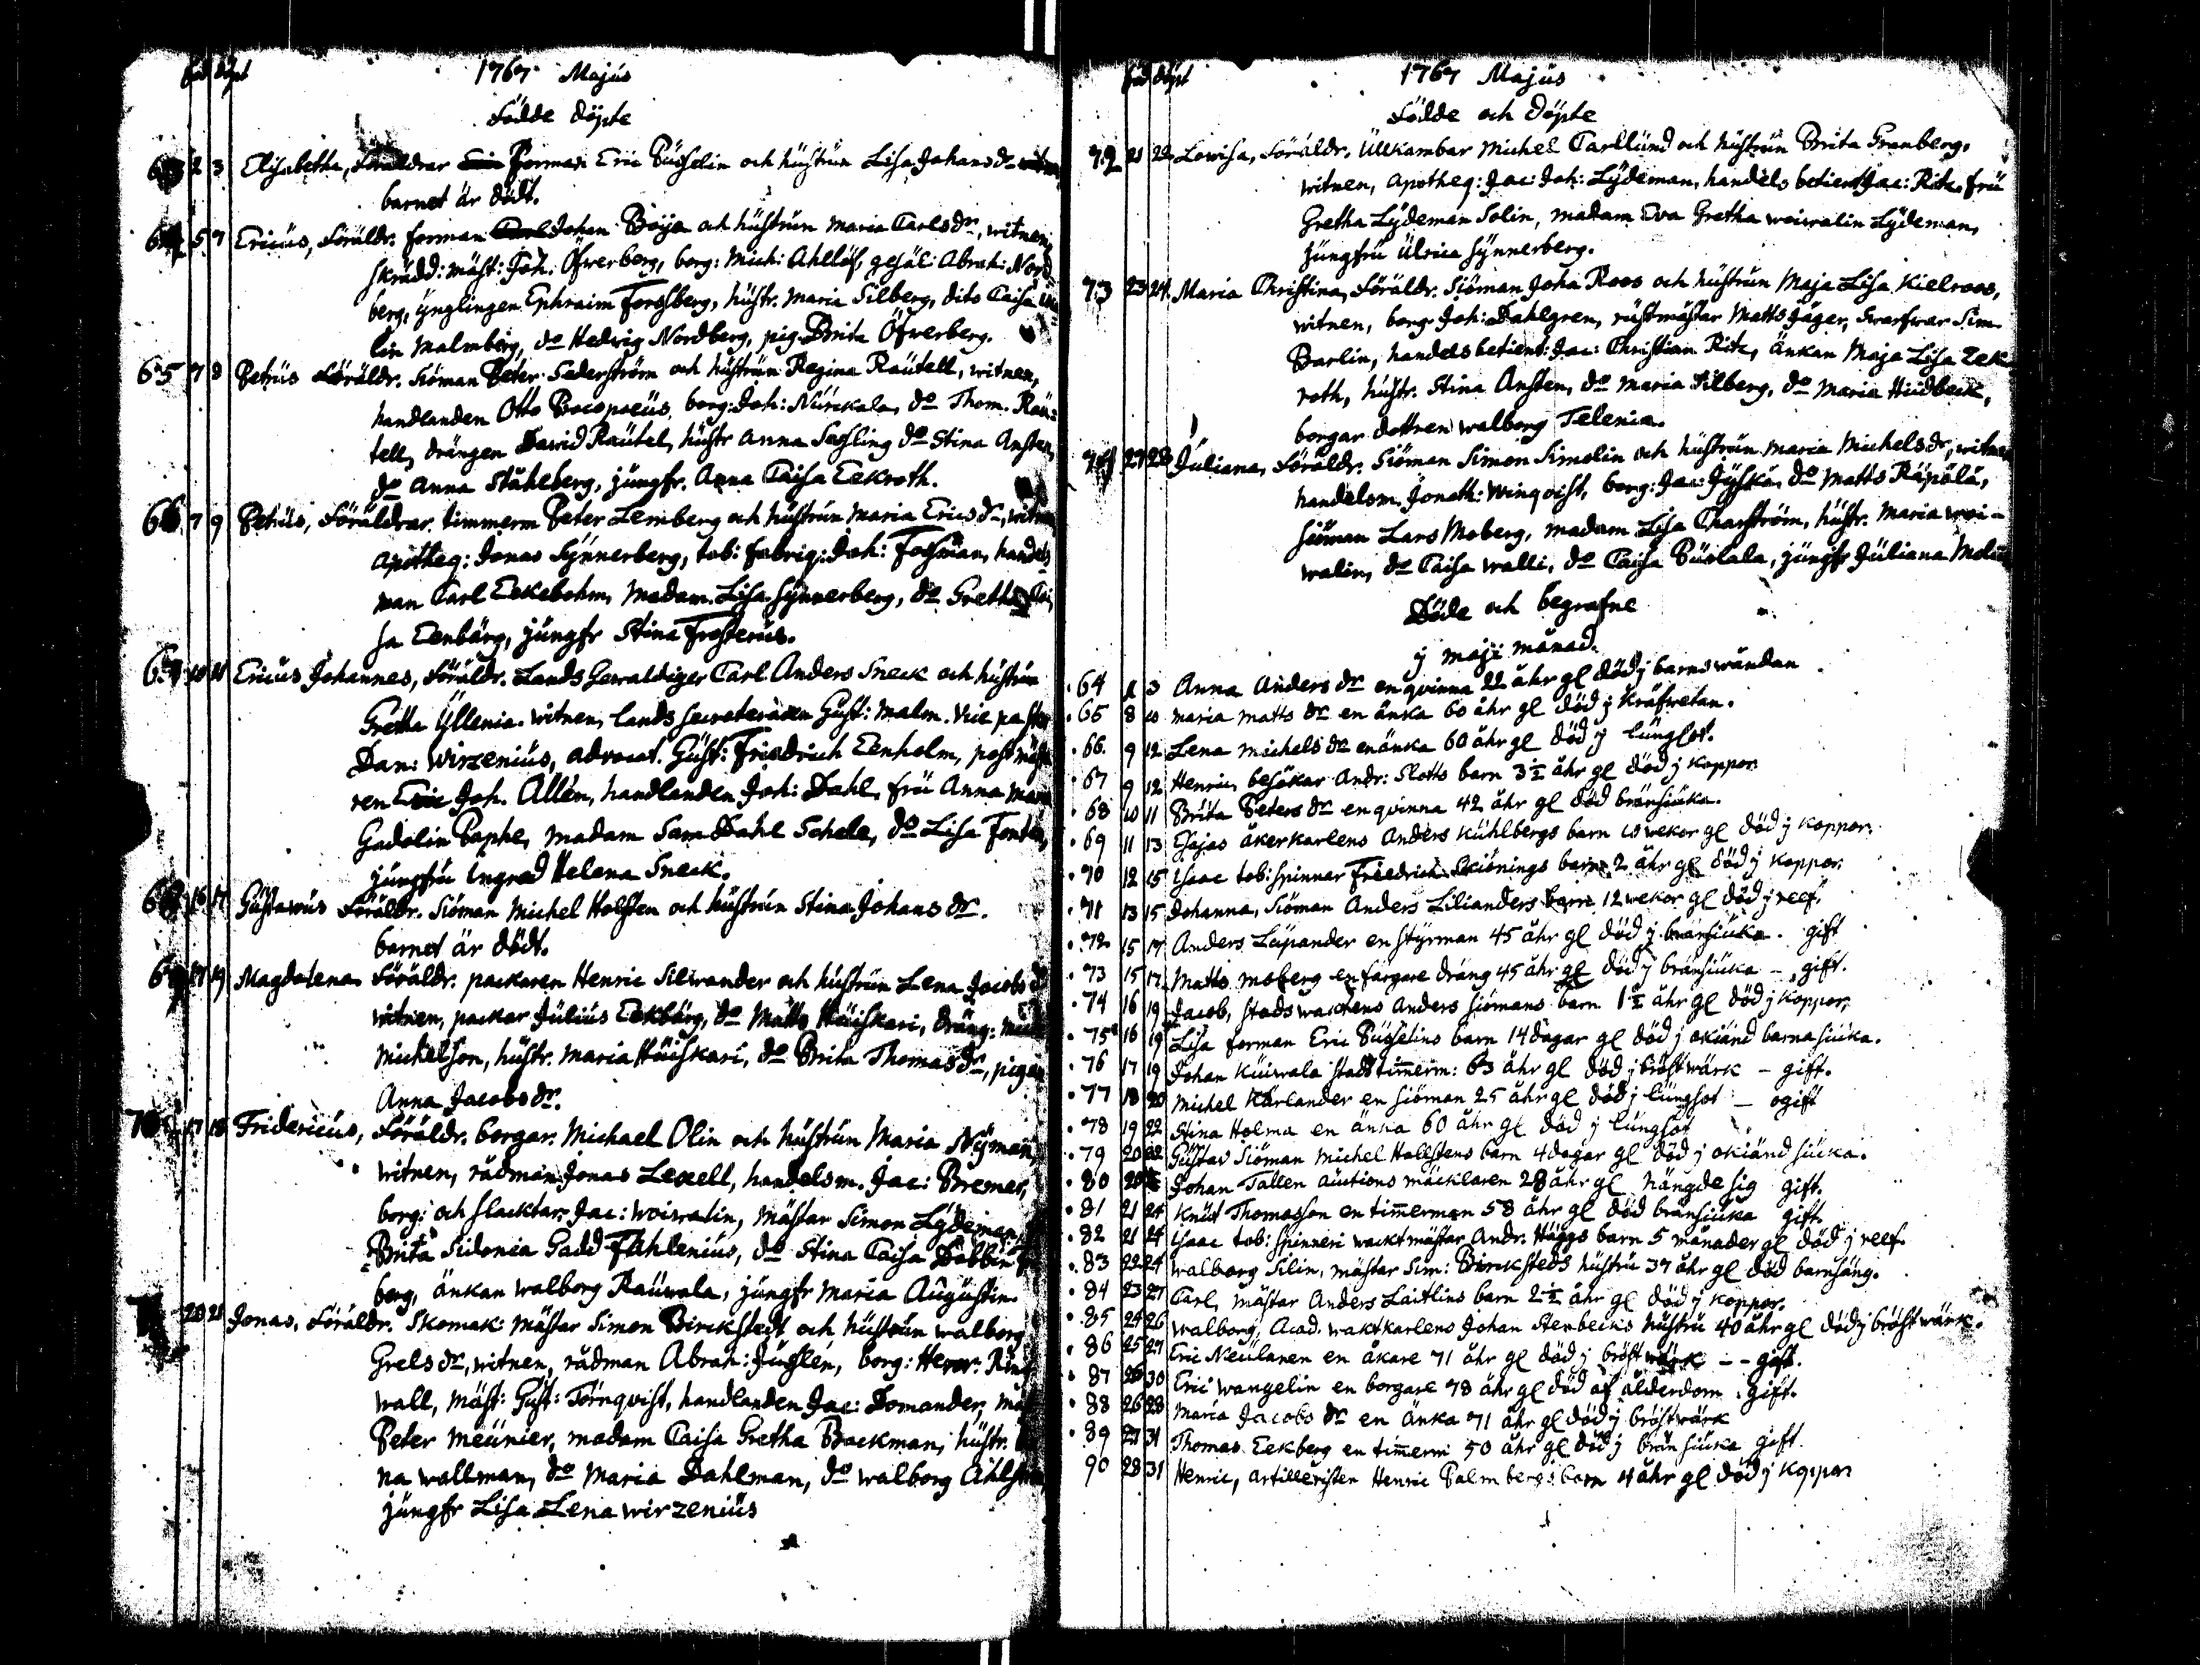 föd döpt 1767 Majus
Födde döpte
63 2 3 Elisabetha, Föräldrar Forman Eric Pusselin och hustrun Lisa Johansdr
barnet är dödt.
64 5 7 Ericus, Föräldr. forman Johan Böija och hustrun Maria Carlsdr, witnen,
skrädd: mäst: Joh: Öfwerberg, borg: Mich: Ahllöf, gesäl: Abrah: Nord
berg, ynglingen Ephraim Forssberg, hustr. Maria Silberg, dito Caisa
lin Malmberg, do Hedwig Nordberg, pig. Brita Öfwerberg.
65 7 8 Petrus Föräldr. Siöman Peter Sederström och hustrun Regina Rautell, witnen,
handlanden Otto Bocopoeus, borg: Joh: Nurckala, do Thom. Rau=
tell, drängen Dawid Rautel, hustr Anna Sassling do Stina Ansten,
do Anna Ståhlberg, jungfr. Anna Caisa Eekroth.
66 7 9 Petrus, Föräldrar. timmerm Peter Lemberg och hustrun Maria Ericsdr, witnen
apotheq: Jonas Synnerberg, tob: fabriq: Joh: Fossman, handels
man Carl Eekebohm, Madam. Lisa Synnerberg, do Gretha Cai
sa Eenbärg, jungfr Stina Frosterus.
67 10 11 Ericus Johannes, Föräldr. Lands Gewaldiger Carl Anders Sneck och hustrun
Gretha Yllenia. witnen, lands secreteraren Gust: Malm. vice pastor
Dan: Wirzenius, advocat. Gust: Friedrich Eenholm, postmäst
ren Joh. Allén, handlanden Joh: Dahl, fru Anna Maria
Gadolin Paphe, madam Sara Dahl Schele, do Lisa Fonten,
jungfru Ingred Helena Sneck.
68 16 17 Gustawus Föräldr. Siöman Michel Holsten och hustrun Stina Johansdr.
barnet är dödt.
69 17 19 Magdalena Föräldr. packaren Henric Silwander och hustrun Lena Jacobsd
witnen, packar Julius Eekbärg, do Matts Haiskari, dräng:
Michelson, hustr. Maria Haiskari, do Brita Thomasdr, pigan
Anna Jacobsdr.
70 17 18 Fridericus, Föräldr. borgar. Michael Olin och hustrun Maria Nyman,
witnen, rådman Jonas Lexell, handelsm. Jac: Bremer,
borg: och slacktar: Jac: Woiwalin, Mästar Simon Lydeman,
Brita Sidonia Gadd Fahlenius, do Stina Caisa Dobbin
berg, änkan Walborg Rauwala, jungfr Maria Augustin.
20 21 Jonas, Föräldr. Skomak: Mästar Simon Birckstedt och hustrun Walborg
Grelsdr, witnen, rådman Abrah: Juslén, borg: Henr: Rind
wall, Mäst: Gust: Törnqvist, handlanden Jac: Domander,
Peter Meunier, madam Caisa Gretha Backman, hustr.
na Wallman, do Maria Dahlman, do Walborg Ahlström
jungfr Lisa Lena Wirzenius
föd döpt 1767 Majus
Födde och döpte
72 21 22 Lowisa, Föräldr. Ullkambar Michel Carllund och hustrun Brita Granberg.
witnen, apotheq: Jac: Joh: Lydeman, handels betient Jac: Ritz, fru
Gretha Lydeman Solin, madam Eva Gretha Woiwalin Lydeman,
jungfru Ulrica Synnerberg.
73 23 24 Maria Christina, Föräldr. Siöman Joha Roos och hustrun Maja Lisa Kielroos,
witnen, borg. Joh: Dahlgren, rustmästar Matts Jäger, Swarfwar Sim.
Barlin, handelsbetient: Jac: Christian Ritz, änkan Maja Lisa Eek
roth, hustr. Stina Ansten, do Maria Silberg, do Maria Hudbeck,
borgar dottren Walborg Telenia.
74 27 28 Juliana, Föräldr. Siöman Simon Simelin och hustrun Maria Michelsdr, witnen
handelsm. Jonath: Winqvist, borg: Jac: Jyskä, do Matts Räpälä,
siöman Lars Moberg, madam Lisa Charström, hustr. Maria Woi-
walin, do Caisa Walli, do Caisa Puslala, jungfr Juliana
Döde och begrafne
j Maji månad.
64 1 3 Anna Andersdr en qvinna 22 åhr gl död j barnswåndan
65 8 10 Maria Mattsdr en änka 60 åhr gl död j kräfwetan.
66. 9 12 Lena Michelsdr en änka 60 åhr gl död j lungsot.
67 9 12 Henric, besökar Andr: Slotts barn 3½ åhr gl död j koppor
68 10 11 Brita Petersdr en qvinna 42 åhr gl död bränsiuka.
69 11 13 Esajas åkerkarlens Anders Kuhlbergs barn 10 wekor gl död j koppor.
70 12 15 Isaac tob: spinnar Friedrich Skiönings barn 2 åhr gl död j koppor.
71 13 15 Johanna, Siöman Anders Lilianders barn 12 wekor gl död j reef.
72 15 17 Anders Lupander en styrman 45 åhr gl död j bränsiuka. gift
73 15 17 Matts Moberg en färgare dräng 45 åhr gl död j bränsiuka - gift.
74 16 19 Jacob, stads wacktens Anders Siömans barn 1½ åhr gl död j koppor,
75 16 19 Lisa forman Eric Pusselins barn 14 dagar gl död j okiänd barnasiuka.
76 17 19 Johan Kuiwala stads timerm: 63 åhr gl död j bröstwärk - gift.
77 18 20 Michel Karlander en siöman 25 åhr gl död j lungsot - ogift
78 19 22 Stina Holma en änka 60 åhr gl död j lungsot
79 20 22 Gustav Siöman Michel Hollstens barn 4 dagar gl död j okiänd siucka.
80 20 Johan Tallen auctions mäcklaren 28 åhr gl hängde sig gift.
81 21 24 Knut Thomasson en timerman 58 åhr gl död bränsiuka gift.
82 21 24 Isaac tob: spinneri wacktmästar Andr. Häggs barn 5 månader gl död j reef.
83 22 24 Walborg Silin, mästar Sim: Bircksteds hustru 37 åhr gl död barnsäng.
84 23 27 Carl, mästar Anders Laitlins barn 2½ åhr gl död j koppor.
85 24 26 Walborg, Acad. waktkarlens Johan Stenbecks hustru 40 åhr gl död j bröstwärk.
86 25 27 Eric Neulanen en åkare 71 åhr gl död j bröstwärk -- gift.
87 26 30 Eric Wangelin en borgare 78 åhr gl död af ålderdom. gift.
88 26 28 Maria Jacobsdr en änka 71 åhr gl död j bröstwärk
89 27 31 Thomas Eekberg en timerm 50 åhr gl död j brän siuka gift.
90 28 31 Henric, artilleristen Henric Palmbergs barn 4 åhr gl död j koppor